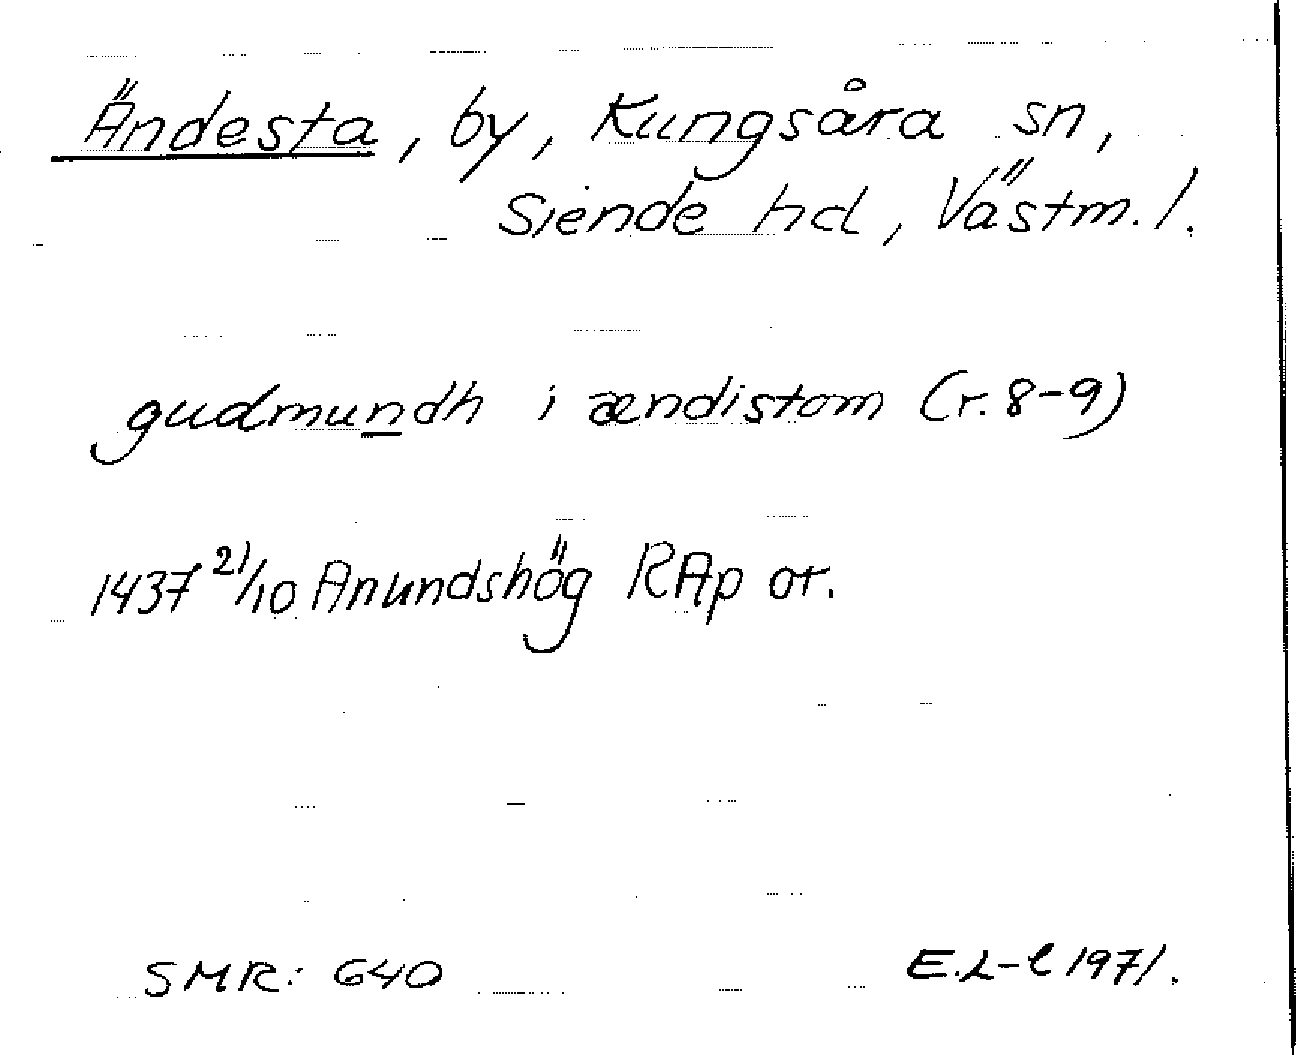 Ändesta, by, Kungsåra sn,
Siende hd, Västm. l.
gudmundh i ændistom (r. 8-9)
1437 21/10 Anundshög RAp or.
SMR: 640
E.L-l 1971.